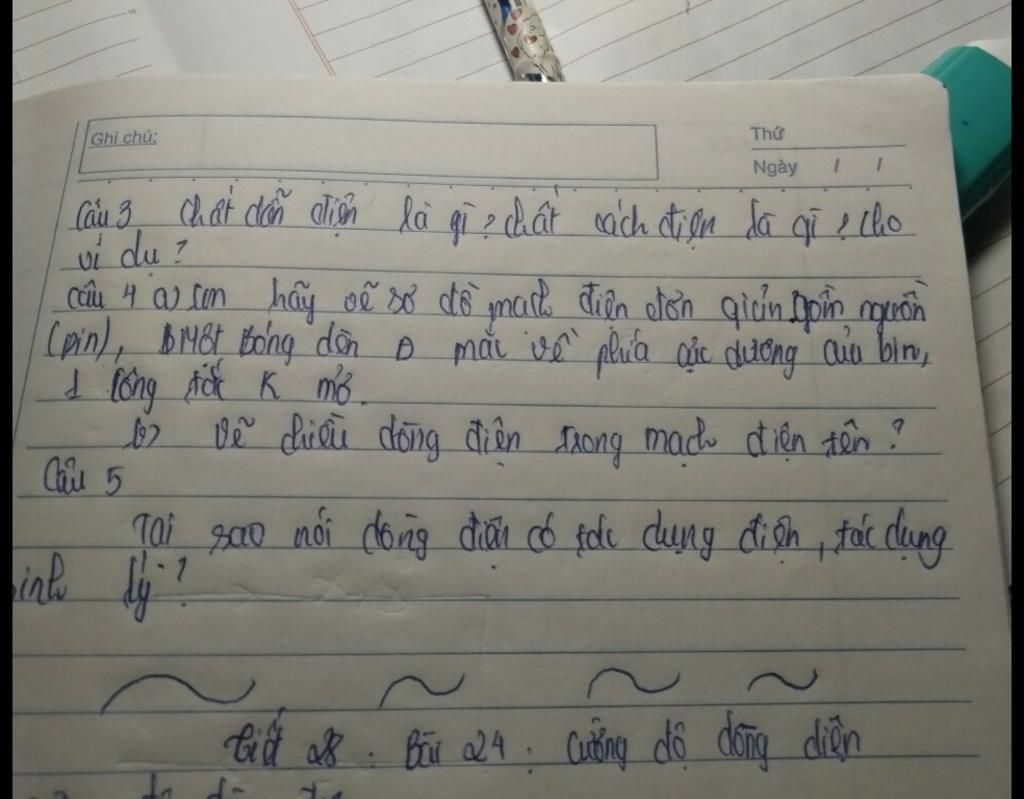 Ghi chú:
Thứ
Ngày / /
Câu 3 chất dẫn điện là gì? chất cách điện là gì? cho
ví dụ?
câu 4 a) em hãy vẽ sơ đồ mạch điện đơn giản gồm nguồn
(pin), Một bóng đèn Đ mắc về phía cực dương của bin,
1 công tắt K mở.
b) vẽ chiều dòng điện trong mạch điện tên?
Câu 5
Tại sao nói dòng điện có tác dụng điện, tác dụng
inh lý?
tiết 28: Bài 24: Cường độ dòng diện